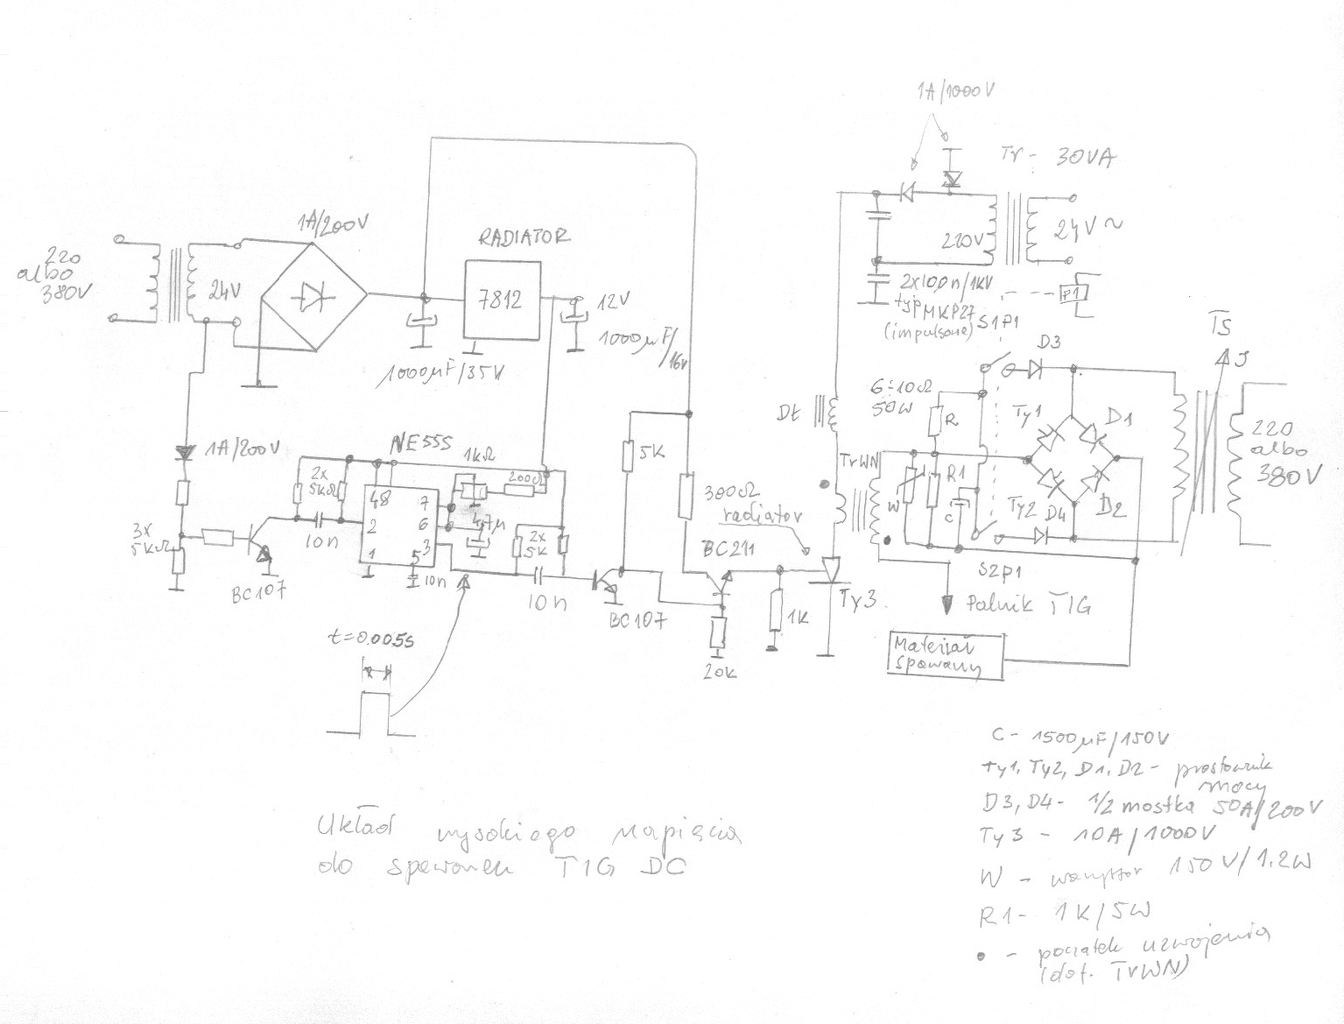 1A/1000V
Tr - 30VA
220V
24V ~
2x100n/1KV
typ MKP27
(impulsowe)
S1P1
P1
1A/200V
RADIATOR
220
albo
380V
24V
7812
12V
1000µF/35V
1000µF/16V
TS
J
D3
6÷10Ω
50W
R
Ty1
D1
Dł
TrWN
R1
W
C
Ty2
D4
D2
220
albo
380V
S2P1
1A/200V
NE555
1kΩ
200Ω
2x
5kΩ
4 8
7
2
6
4,7µ
3
1
5
10n
10n
2x
5K
3x
5kΩ
BC107
10n
BC107
5K
300Ω
radiator
BC211
1K
20K
Ty3
Palnik TIG
Materiał
spawany
t=0.005s
C - 1500µF/150V
Ty1, Ty2, D1, D2 - prostownik
mocy
D3, D4 - 1/2 mostka 50A/200V
Ty3 - 10A/1000V
W - warystor 150V/1.2W
R1 - 1K/5W
• - początek uzwojenia
(dot. TrWN)
Układ wysokiego napięcia
do spawarek TIG DC